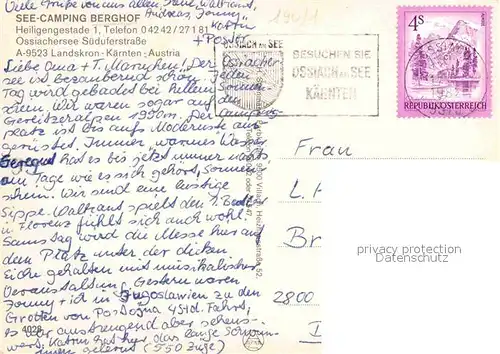 Viele Grüße von allen, Tante Waltraut,
Andreas, Jonny
Katrin
+ Pastor
SEE-CAMPING BERGHOF
Heiligengestade 1, Telefon 0 42 42 / 27 1 81
Ossiachersee Süduferstraße
A-9523 Landskron · Kärnten · Austria
Liebe Oma + T. Mariechen! Der Ossiacher-
see ist bezaubernd schön. Jeden
Tag wird gebadet bei hellem Sonnen-
schein. Wir waren sogar auf der
Gerlitzeralpen 1950m. Der Camping-
platz ist bis aufs Modernste aus-
gerüstet. Immer warmes Wasser
Geregnet hat es bis jetzt immer nachts
am Tage wie es sich gehört, Sonnen-
schein. Wir sind eine lustige
Sippe. Waltraut spielt den 1.
u. Florenz fühlt sich auch wohl.
Samstag wird die Messe hier auf
dem Platz unter der dicken
Eiche gehalten mit musikalischer
Veranstaltung. Gestern waren
Jonny + ich in Jugoslawien zu den
Grotten von Postojna 4 Std. Fahrt,
es war anstrengend aber sehens-
wert, Katrin hat hier das lange Schwim-
men gelernt (550 Züge)
4028
OSSIACH AM SEE
BESUCHEN SIE
OSSIACH AM SEE
KÄRNTEN
4S
REPUBLIK ÖSTERREICH
9500 Villach, Heizhausstraße 52
Frau
L. H
Br
2800
privacy protection
Datenschutz